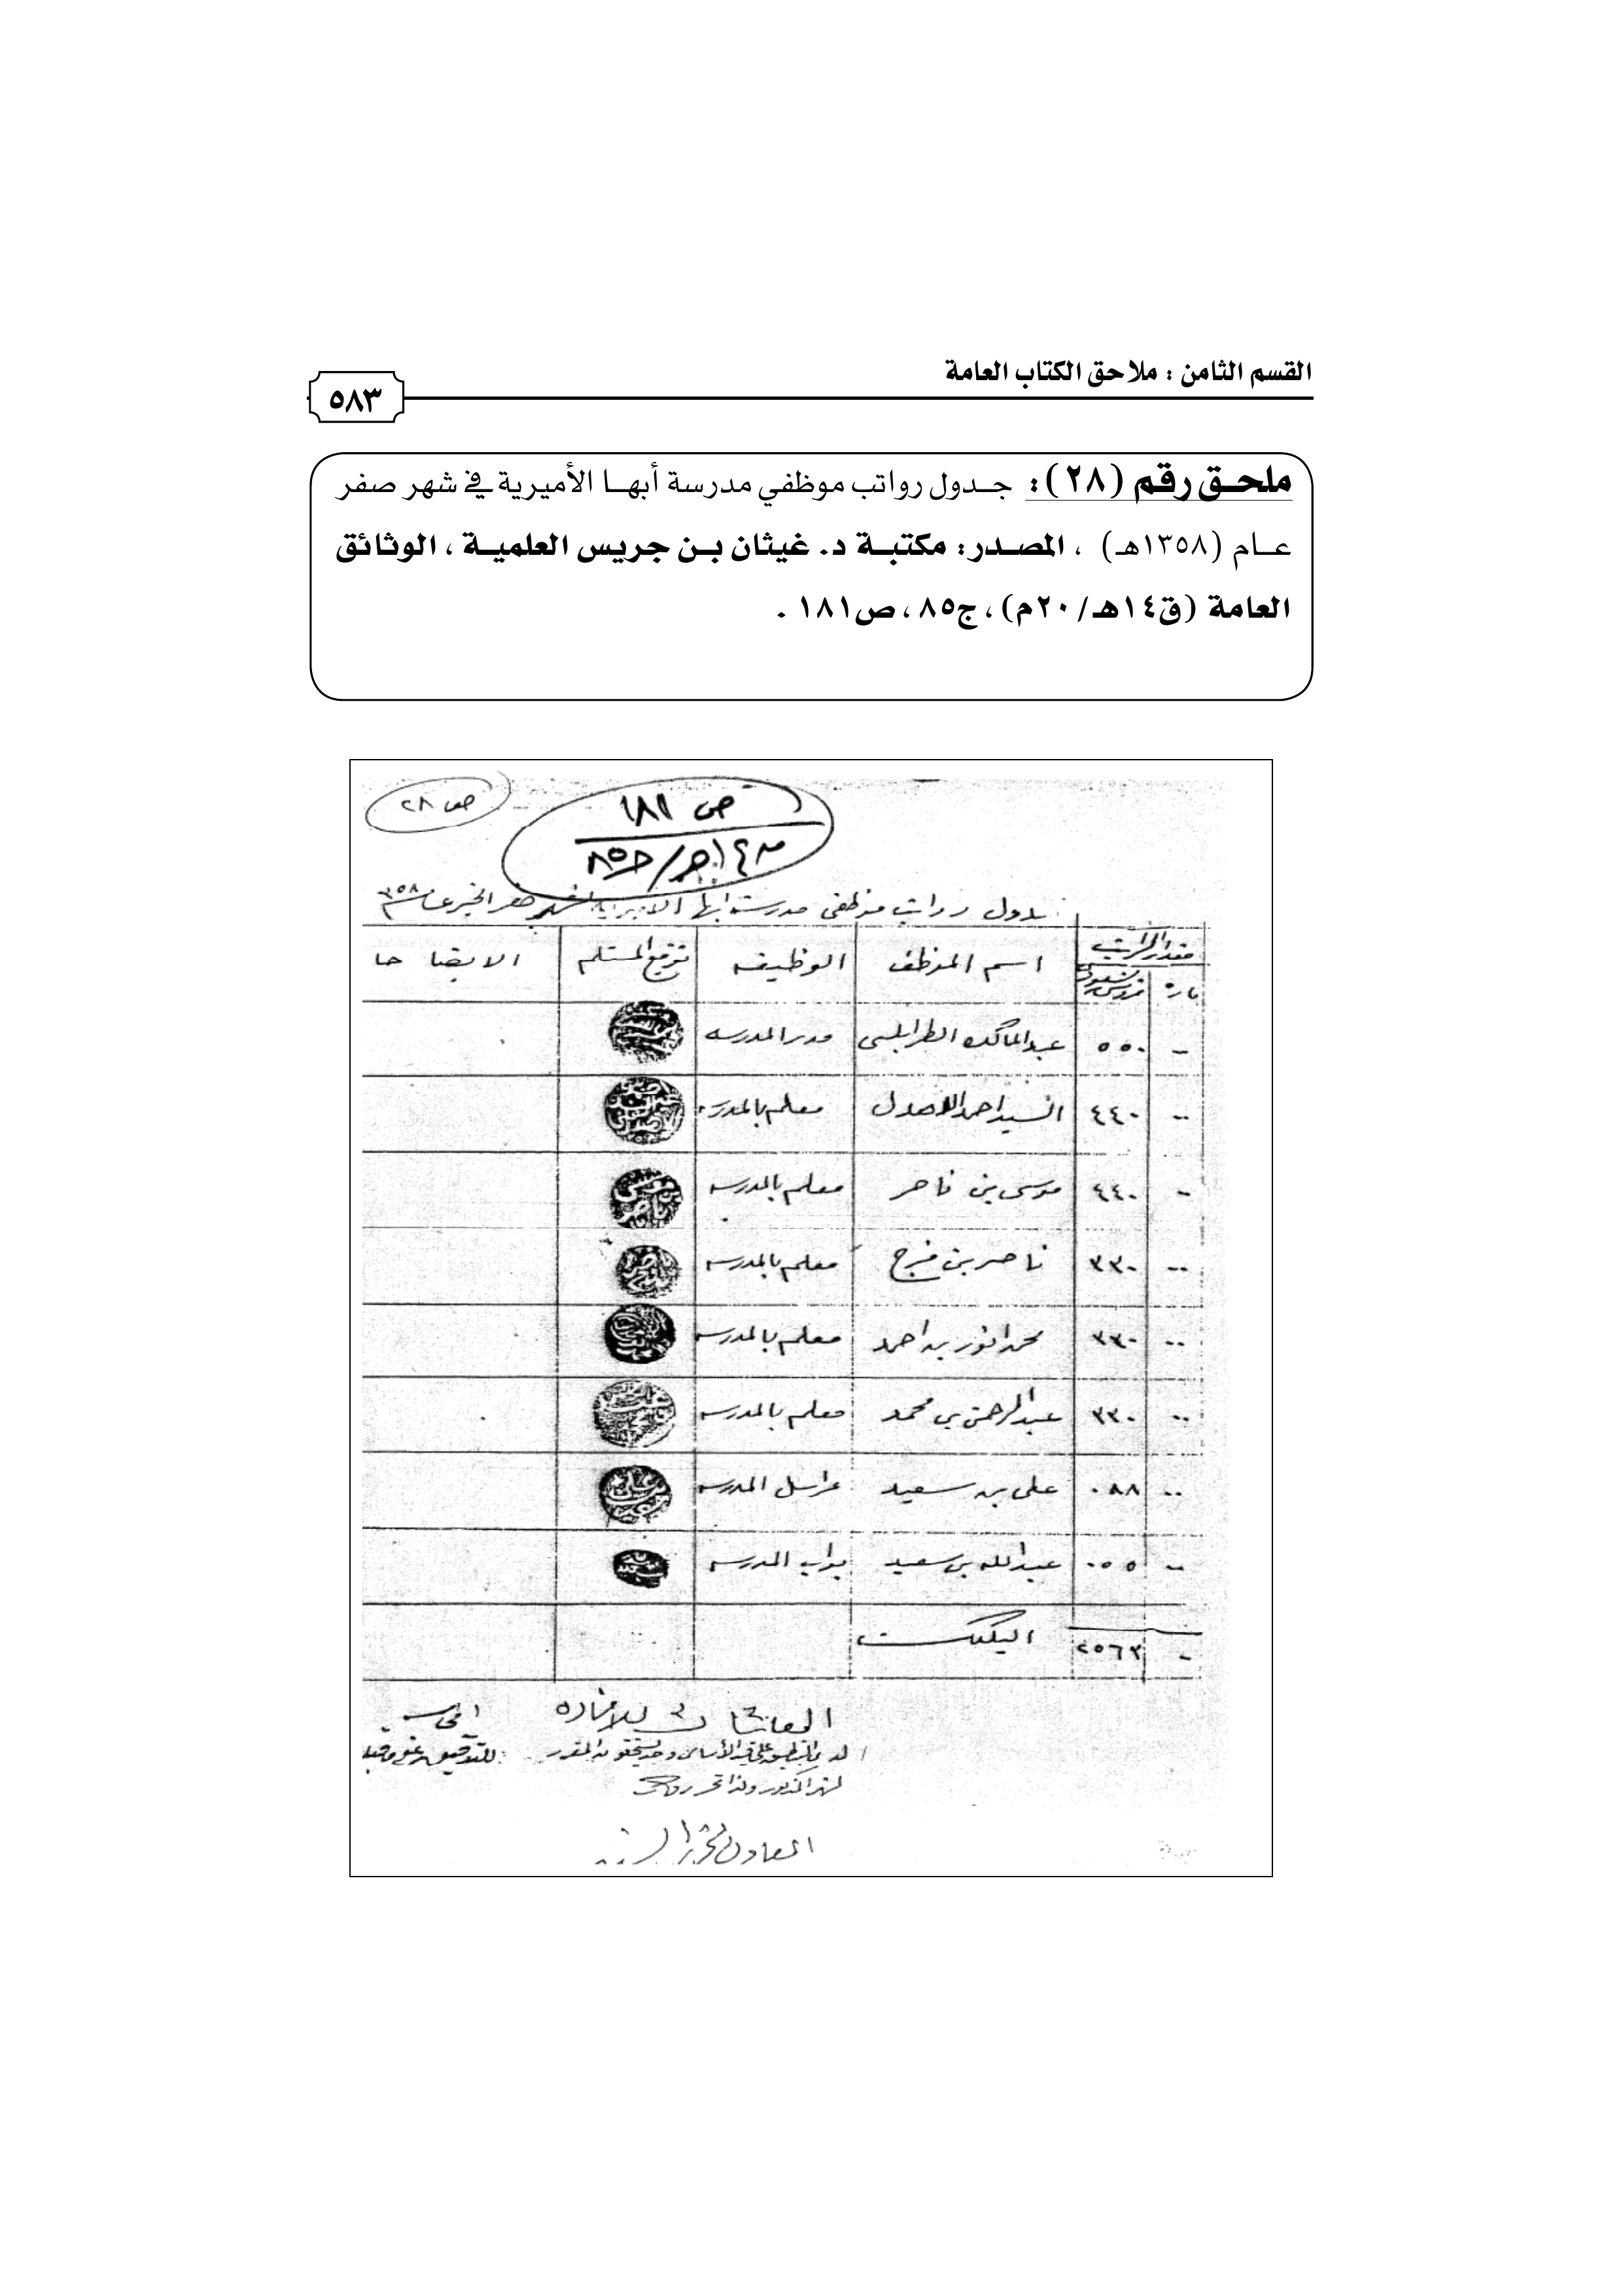 القسم الثامن : ملاحق الكتاب العامة
٥٨٣
ملحـق رقم (٢٨): جـدول رواتب موظفي مدرسة أبهـا الأميرية في شهر صفر
عـام (١٣٥٨هـ) ، المصـدر: مكتبـة د. غيثان بـن جريس العلميـة ، الوثائق
العامة (ق١٤هـ/٢٠م)، ج٨٥، ص١٨١ .
ص ٢٨
ص ١٨١
جدول رواتب موظفى مدرسة ابها الاميرية لشهر صفر الخير عام ٣٥٨
مقدار الراتب
بارة قروش سعودى اسم الموظف الوظيفه توقيع المستلم الايضاحا
- ٥٥٠ عبدالمالك الطرابلسى مدير المدرسه
.. ٤٤٠ السيد احمد الاهدل معلم بالمدرسه
- ٤٤٠ موسى بن ناصر معلم بالمدرسه
.. ٣٣٠ ناصر بن فرج معلم بالمدرسه
.. ٣٣٠ محمد انور بن احمد معلم بالمدرسه
.. ٣٣٠ عبدالرحمن بن محمد معلم بالمدرسه
.. ٠٨٨ على بن سعيد مراسل المدرسه
.. ٠٥٥ عبدالله بن سعيد بواب المدرسه
- ٢٥٦٣